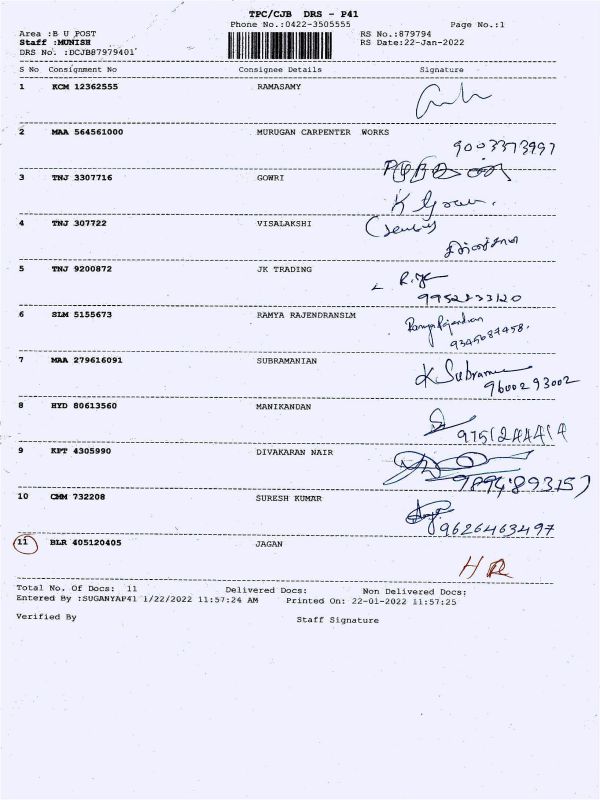 TPC/CJB DRS - P41
Phone No.:0422-3505555 Page No.:1
Area :B U POST RS No.:879794
Staff :MUNISH RS Date:22-Jan-2022
DRS No. :DCJB87979401
S No Consignment No Consignee Details Signature
1 KCM 12362555 RAMASAMY
2 MAA 564561000 MURUGAN CARPENTER WORKS
9003373997
3 TNJ 3307716 GOWRI
K Gowri.
4 TNJ 307722 VISALAKSHI
5 TNJ 9200872 JK TRADING
9952233120
6 SLM 5155673 RAMYA RAJENDRANSLM
Ramya Rajendran
9345687458.
7 MAA 279616091 SUBRAMANIAN
K Subrama
9600293002
8 HYD 80613560 MANIKANDAN
9751244414
9 KPT 4305990 DIVAKARAN NAIR
10 CMM 732208 SURESH KUMAR
9626463497
11 BLR 405120405 JAGAN
Total No. Of Docs: 11 Delivered Docs: Non Delivered Docs:
Entered By :SUGANYAP41 1/22/2022 11:57:24 AM Printed On: 22-01-2022 11:57:25
Verified By Staff Signature